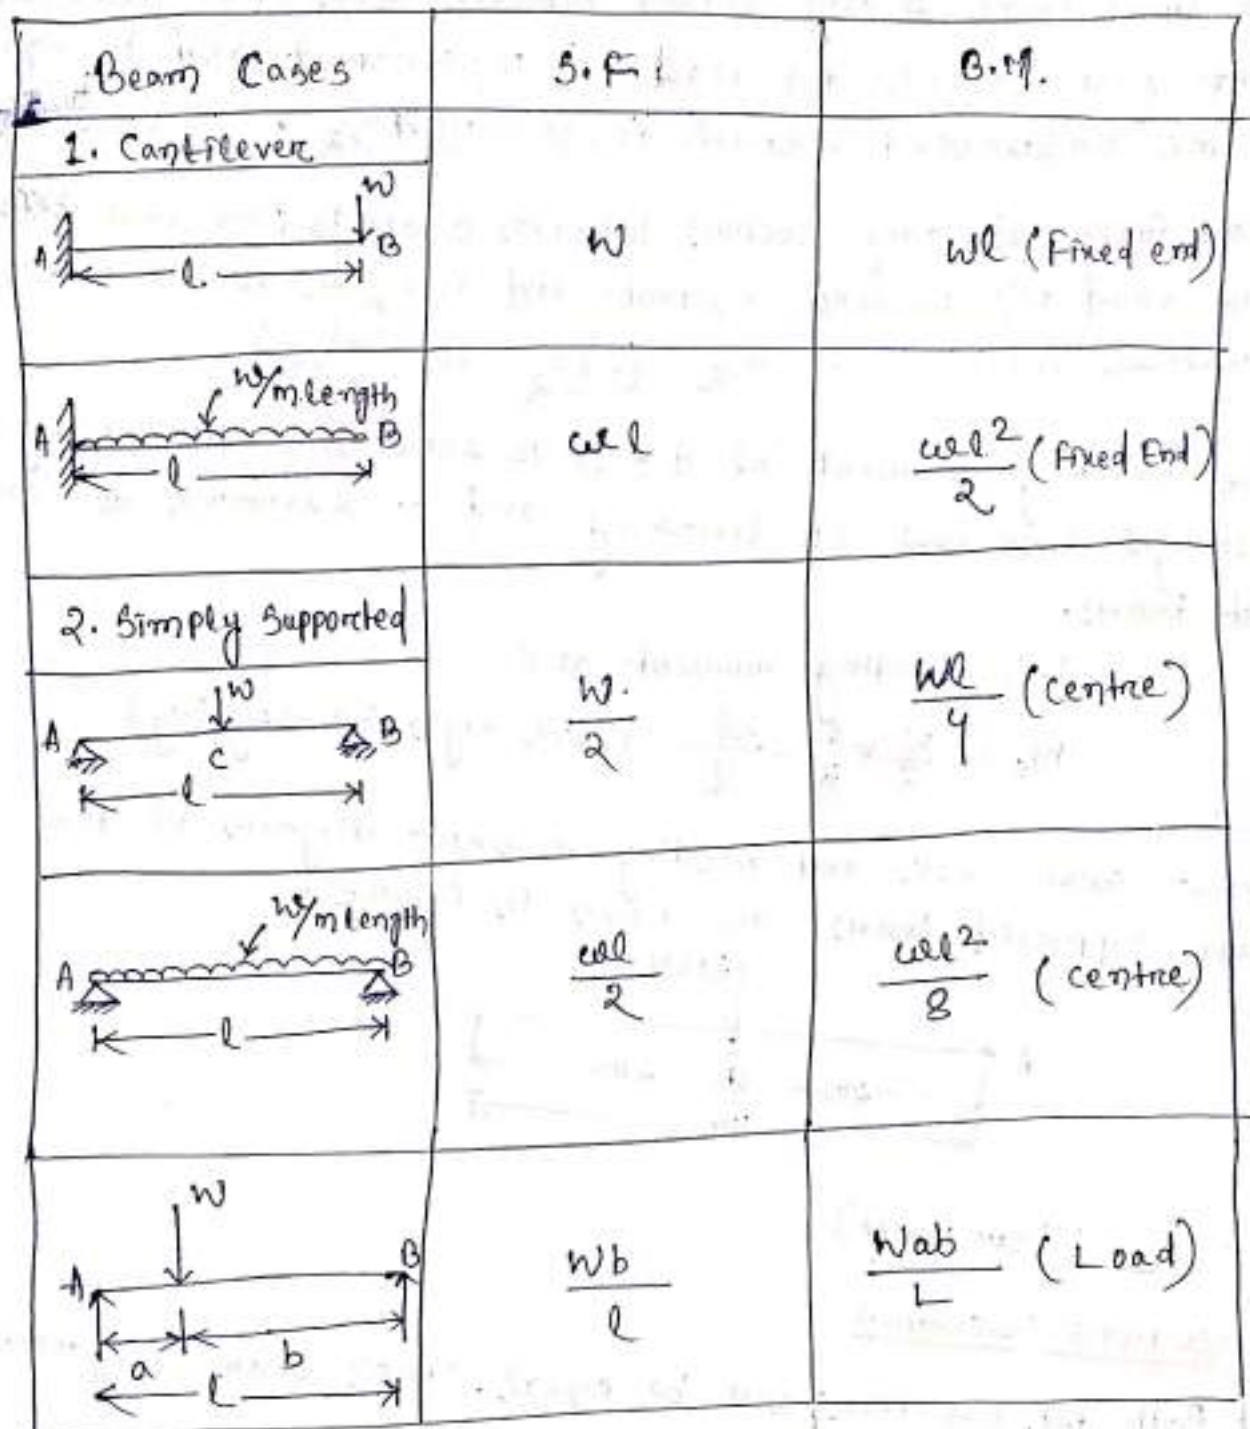 Beam Cases S.F. B.M.
1. Cantilever
W
A B
l
W
Wl (Fixed end)
w/m length
A B
l
wl
wl²/2 (Fixed End)
2. Simply Supported
W
A C B
l
W/2
Wl/4 (Centre)
w/m length
A B
l
wl/2
wl²/8 (Centre)
W
A B
a b
l
Wb/l
Wab/L (Load)